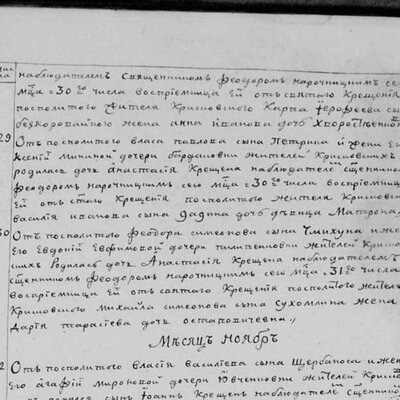 наблюдателемъ Священникомъ Феодоромъ нарочницкимъ сего
мца 30го числа воспріемница Ей отъ святаго Крещенія
посполитого жителя Крисковского Карпа Іерофеева сы
безкоровайного жена анна иванова дочь
29 Отъ посполитого власа павлова сына Петрина и жени Его
Ксеніи Мининой дочери жителей Крисковскихъ
родилась дочь Анастасія Крещена наблюдателемъ сщенником
Феодоромъ нарочницкимъ сего мца 30го числа воспріемница
Ей отъ стаго Крещенія посполитого жителя Крисковского
василія иванова сына дочь дѣвица Матрона
30 Отъ посполитого Феодора симеонова сына Чмихуна и же
Его Евдокіи Евфимовой дочери жителей Криско
скихъ Родилась дочь Анастасія Крещена наблюдателемъ
сщенникомъ Феодоромъ нарочницкимъ сего мца 31го числа
воспріемница Ей отъ святаго Крещенія посполитого жителя
Крисковского михаила симеонова сына сухомлина жена
дарія тарасіева дочь остаповичевна
Мѣсяцъ ноябрь
Отъ посполитого власія василіева сына Щербаноса и жен
Его агафіи мироновой дочери жителей Криско
родился сынъ Іоаннъ Крещенъ наблюдателемъ сщенник